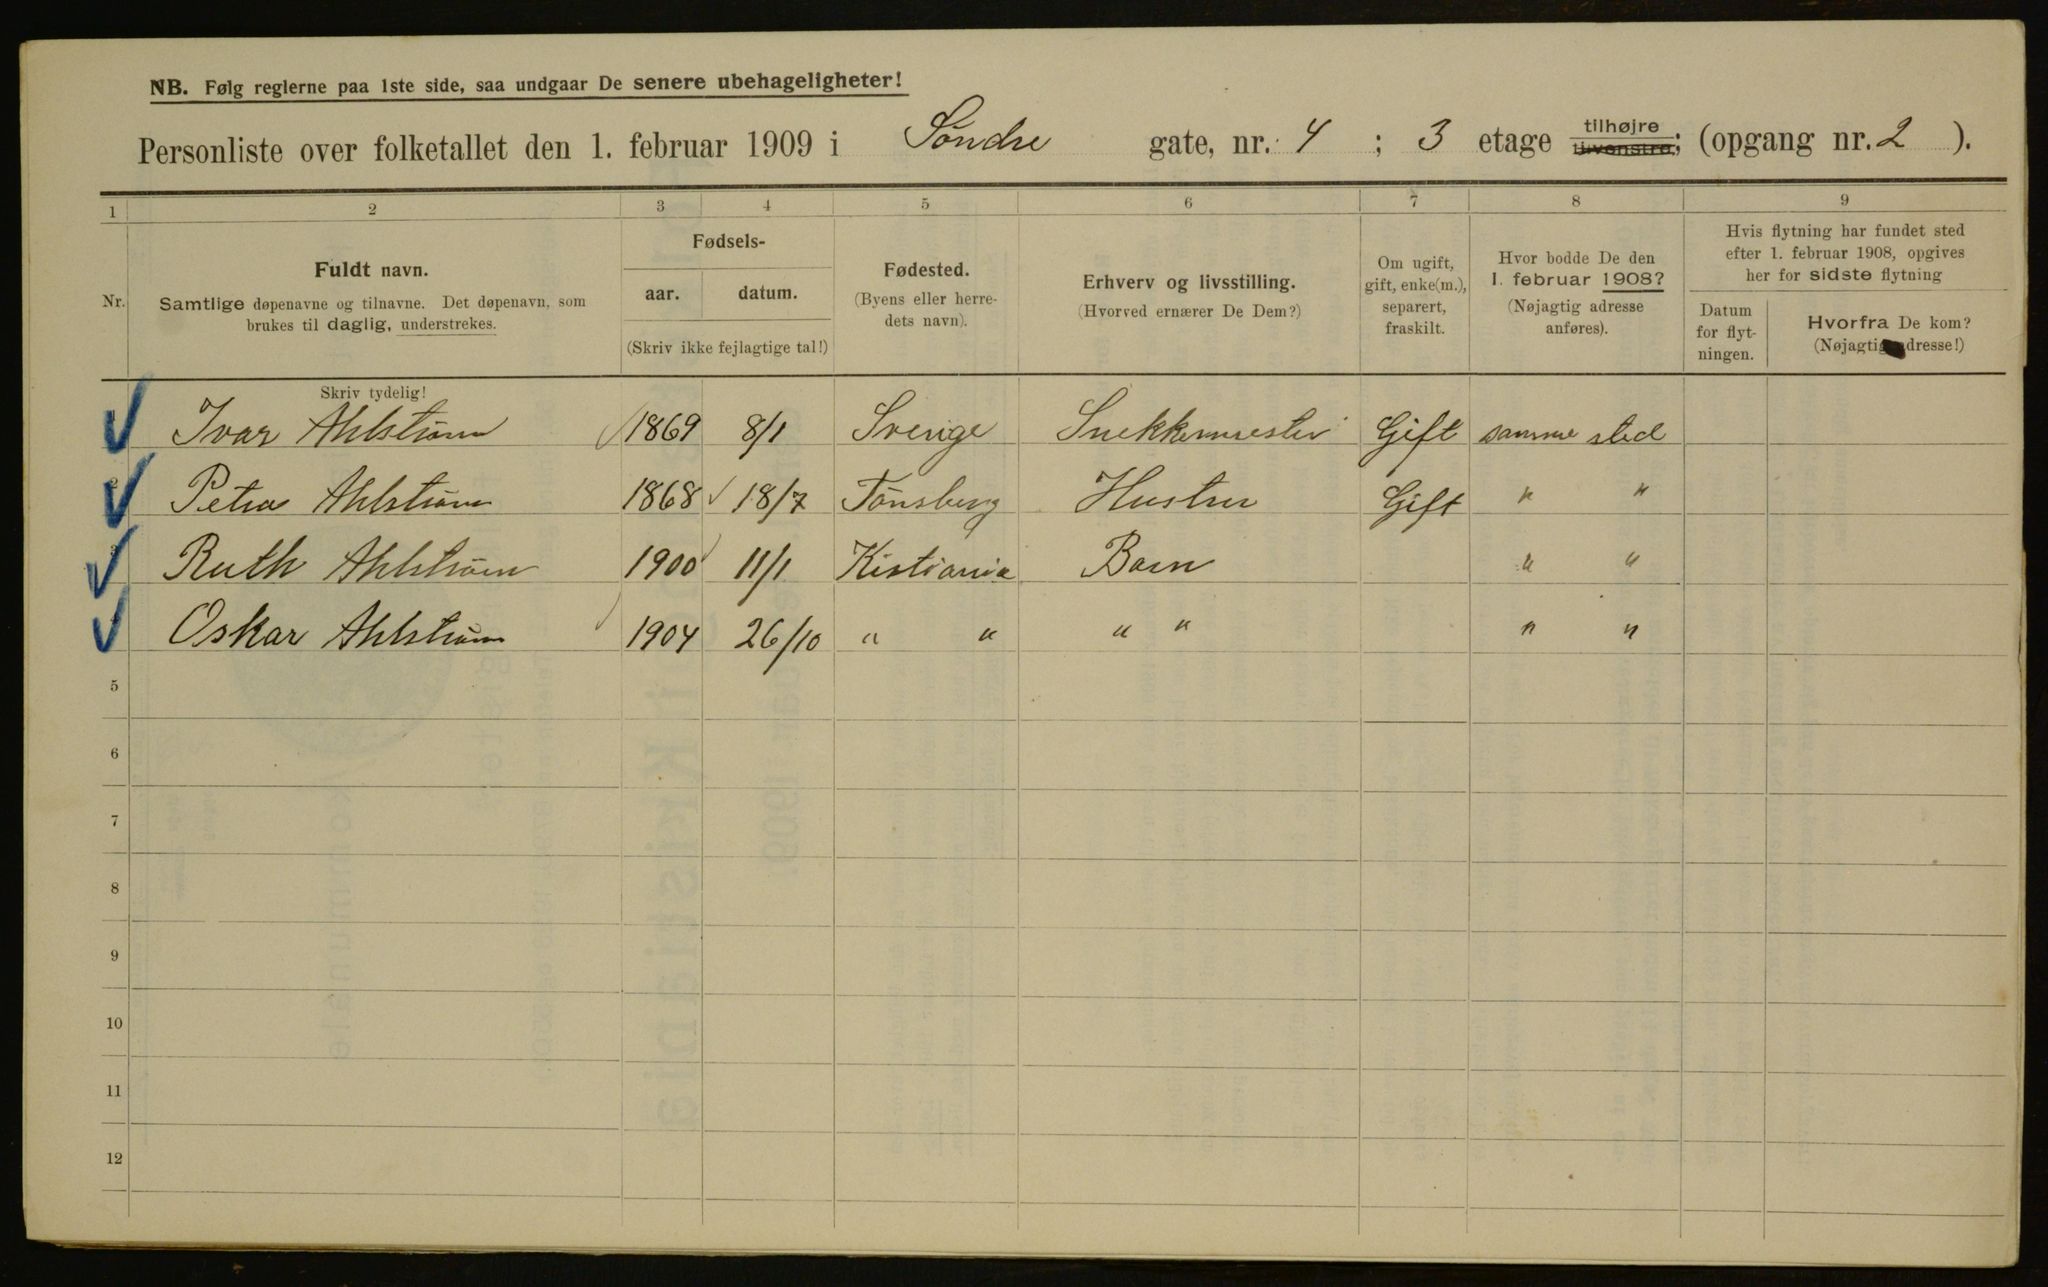 NB. Følg reglerne paa 1ste side, saa undgaar De senere ubehageligheter!
Personliste over folketallet den 1. februar 1909 i Søndre gate, nr. 4 ; 3 etage tilhøjre tilvenstre; (opgang nr. 2 ).
1 2 3 4 5 6 7 8 9
Nr.
Fuldt navn.
Samtlige døpenavne og tilnavne. Det døpenavn, som
brukes til daglig, understrekes.
Fødsels-
aar. datum.
(Skriv ikke fejlagtige tal!)
Fødested.
(Byens eller herre-
dets navn).
Erhverv og livsstilling.
(Hvorved ernærer De Dem?)
Om ugift,
gift, enke(m.),
separert,
fraskilt.
Hvor bodde De den
1. februar 1908?
(Nøjagtig adresse
anføres).
Hvis flytning har fundet sted
efter 1. februar 1908, opgives
her for sidste flytning
Datum
for flyt-
ningen.
Hvorfra De kom?
(Nøjagtig adresse!)
Skriv tydelig!
Ivar Ahlstrøm 1869 8/1 Sverige Snekkermester Gift samme sted
Petra Ahlstrøm 1868 18/7 Tønsberg Hustru Gift " "
Ruth Ahlstrøm 1900 11/1 Kistiania Barn " "
Oskar Ahlstrøm 1904 26/10 " " " " " "
5
6
7
8
9
10
11
12